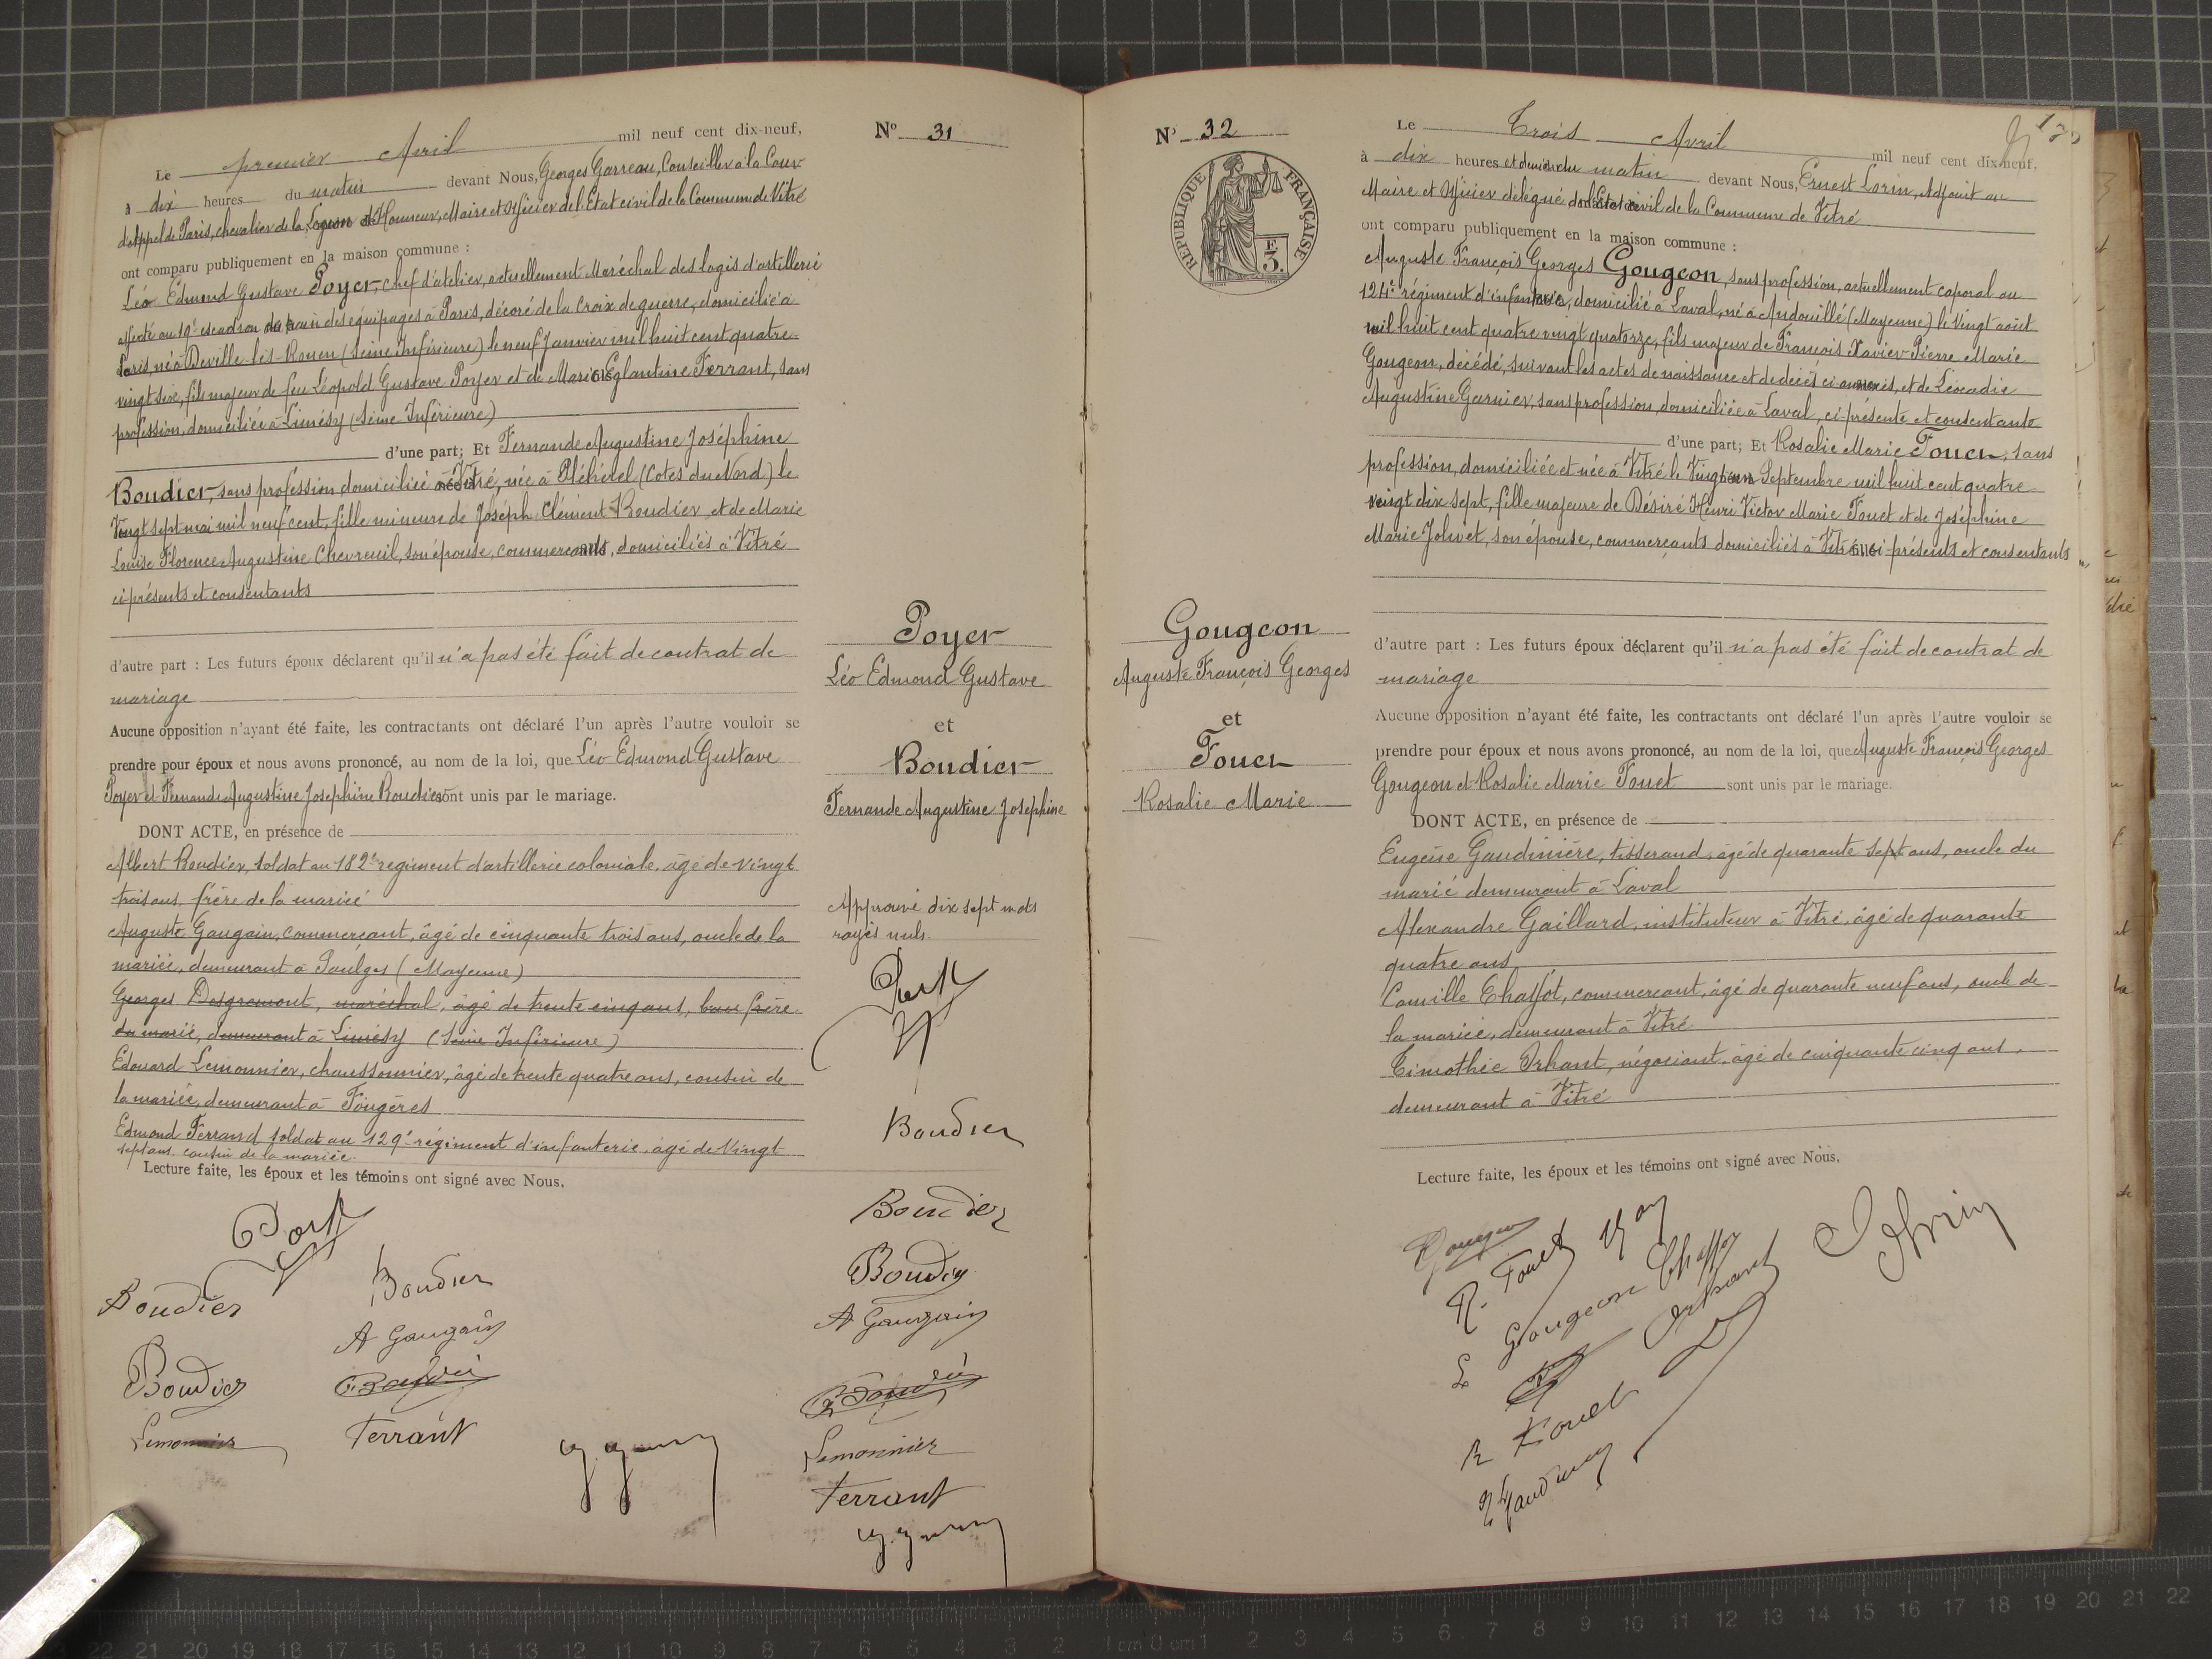 Le premier Avril mil neuf cent dix-neuf,
à dix heures du matin devant Nous, Georges Garreau, Conseiller à la Cour
d'Appel de Paris, chevalier de la Légion d'Honneur, Maire et Officier de l'Etat civil de la Commune de Vitré
ont comparu publiquement en la maison commune :
Léo Edmond Gustave Poyer, chef d'atelier, actuellement Maréchal des logis d'artillerie
affecté au 19e escadron du train des équipages à Paris, décoré de la Croix de guerre, domicilié à
Paris, né à Deville-lès-Rouen (Seine Inférieure) le neuf Janvier mil huit cent quatre
vingt six, fils majeur de feu Léopold Gustave Poyer et de Marie Eglantine Ferrant, sans
profession, domiciliée à Limésy (Seine Inférieure)
d'une part; Et Fernande Augustine Joséphine
Boudier, sans profession domiciliée à Vitré, née à Pléhérel (Cotes du Nord) le
Vingt sept mai mil neuf cent, fille mineure de Joseph Clément Boudier et de Marie
Louise Florence Augustine Chevreuil, son épouse, commerçants, domiciliés à Vitré
ci présents et consentants
d'autre part : Les futurs époux déclarent qu'il n'a pas été fait de contrat de
mariage
Aucune opposition n'ayant été faite, les contractants ont déclaré l'un après l'autre vouloir se
prendre pour époux et nous avons prononcé, au nom de la loi, que Léo Edmond Gustave
Poyer et Fernande Augustine Josephine Boudier sont unis par le mariage.
DONT ACTE, en présence de
Albert Boudier, soldat au 182e regiment d'artillerie coloniale, âgé de vingt
trois ans, frère de la mariée
Auguste Gaugain, commerçant, âgé de cinquante trois ans, oncle de la
mariée, demeurant à Saulges (Mayenne)
Georges Desgremont, maréchal, âgé de trente cinq ans, beau frère
du marié, demeurant à Limésy (Seine Inférieure)
Edouard Lemonnier, chaussonnier, âgé de trente quatre ans, cousin de
la mariée, demeurant à Fougères
Edmond Ferrand soldat au 129e régiment d'infanterie, âgé de Vingt
sept ans, cousin de la mariée.
Lecture faite, les époux et les témoins ont signé avec Nous.
Boudier
Boudier
A Gaugain
Boudier
Lemonnier
Ferrant
No 31
Poyer
Léo Edmond Gustave
et
Boudier
Fernande Augustine Josephine
Approuvé dix sept mots
rayés nuls.
Boudier
Boudier
Boudier
A Gaugain
Lemonnier
Ferrant
No 32
RÉPUBLIQUE FRANÇAISE
F
3.
Gougeon
Auguste François Georges
et
Fouet
Rosalie Marie
Le Trois Avril mil neuf cent dix-neuf.
à dix heures et demie du matin devant Nous, Ernest Lorin, Adjoint au
Maire et Officier délégué de l'Etat civil de la Commune de Vitré
ont comparu publiquement en la maison commune :
Auguste François Georges Gougeon, sans profession, actuellement caporal au
124e régiment d'infanterie, domicilié à Laval, né à Andouillé (Mayenne) le vingt août
mil huit cent quatre vingt quatorze, fils majeur de François Xavier Pierre Marie
Gougeon, décédé, suivant les actes de naissance et de décès ci annexés, et de Léocadie
Augustine Garnier, sans profession, domiciliée à Laval, ci présente et consentante
d'une part; Et Rosalie Marie Fouet, sans
profession, domiciliée et née à Vitré le Vingt un Septembre mil huit cent quatre
vingt dix sept, fille majeure de Désiré Henri Victor Marie Fouet et de Joséphine
Marie Jolivet, son épouse, commerçants domiciliés à Vitré, ci présents et consentants
d'autre part : Les futurs époux déclarent qu'il n'a pas été fait de contrat de
mariage
Aucune opposition n'ayant été faite, les contractants ont déclaré l'un après l'autre vouloir se
prendre pour époux et nous avons prononcé, au nom de la loi, que Auguste François Georges
Gougeon et Rosalie Marie Fouet sont unis par le mariage.
DONT ACTE, en présence de
Eugène Gaudinière, tisserand, âgé de quarante sept ans, oncle du
marié demeurant à Laval
Alexandre Gaillard, instituteur à Vitré, âgé de quarante
quatre ans
Camille Chaffot, commerçant, âgé de quarante neuf ans, oncle de
la mariée, demeurant à Vitré
Timothée Orhant, négociant, âgé de cinquante cinq ans,
demeurant à Vitré
Lecture faite, les époux et les témoins ont signé avec Nous.
Gougeon
R. Fouet
L Gougeon Chaffot
Orhant
Fouet
22 21 20 19 18 17 16 15 14 13 12 11 10 9 8 7 6 5 4 3 2 1 cm 0 cm 1 2 3 4 5 6 7 8 9 10 11 12 13 14 15 16 17 18 19 20 21 22